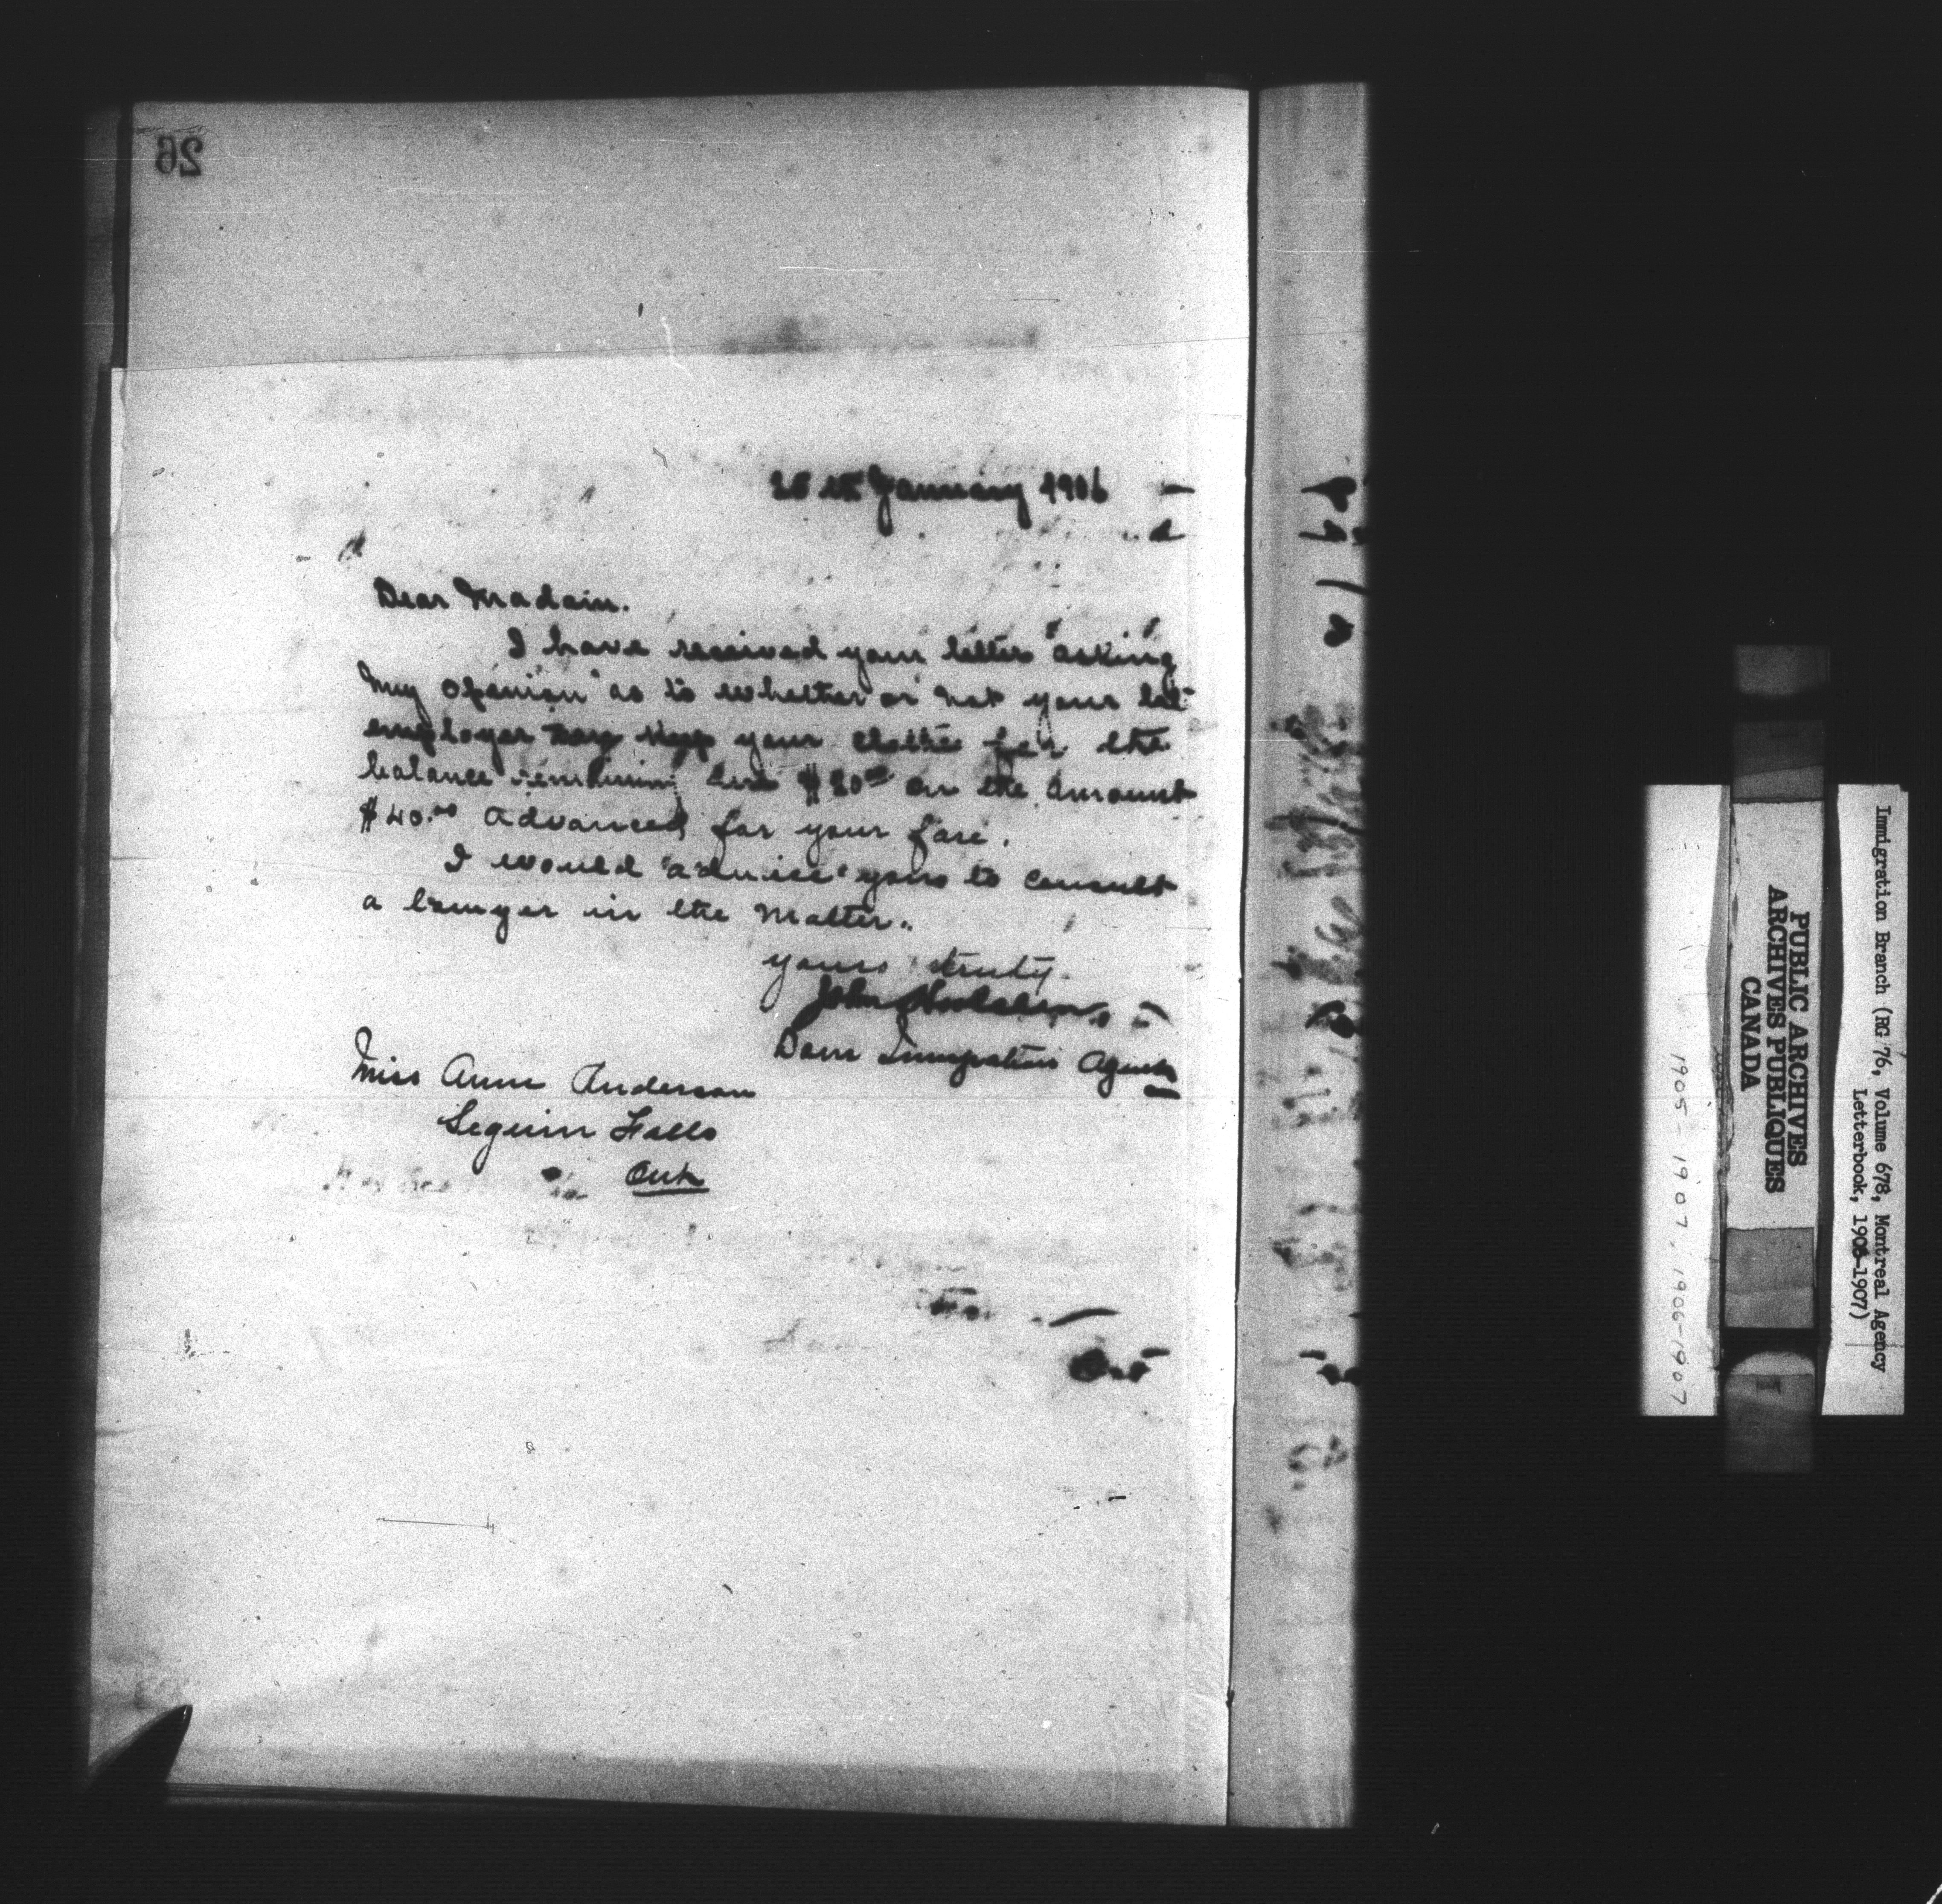 26
25th January 1906
Dear Madam.
I have received your letter asking
my opinion as to whether or not your late
employer can keep your clothes for the
balance remaining due $20.00 on the amount
$40.00 advanced for your fare.
I would advise you to consult
a lawyer in the matter.
yours truly
John Hoolahan
Dom Immigration Agent
Miss Anne Anderson
Seguin Falls
Ont
PUBLIC ARCHIVES
ARCHIVES PUBLIQUES
CANADA
Immigration Branch (RG 76, Volume 678, Montreal Agency
Letterbook, 1906-1907)
1905-1907, 1906-1907